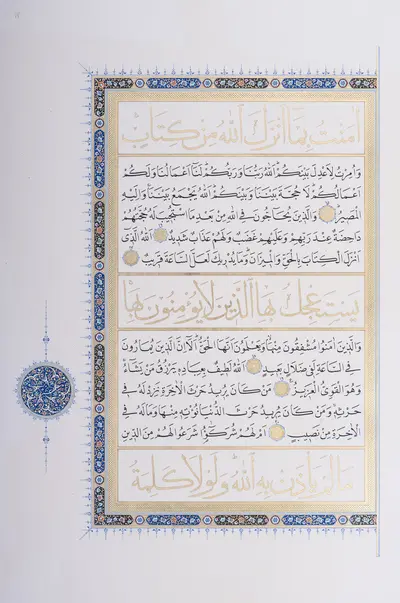 اٰمَنْتُ بِمَا أَنْزَلَ اللهُ مِنْ كِتَابٍ
وَأُمِرْتُ لِأَعْدِلَ بَيْنَكُمُ اللهُ رَبُّنَا وَرَبُّكُمْ لَنَا أَعْمَالُنَا وَلَكُمْ
أَعْمَالُكُمْ لَا حُجَّةَ بَيْنَنَا وَبَيْنَكُمُ اللهُ يَجْمَعُ بَيْنَنَا وَإِلَيْهِ
الْمَصِيرُ وَالَّذِينَ يُحَاجُّونَ فِي اللهِ مِنْ بَعْدِ مَا اسْتُجِيبَ لَهُ حُجَّتُهُمْ
دَاحِضَةٌ عِنْدَ رَبِّهِمْ وَعَلَيْهِمْ غَضَبٌ وَلَهُمْ عَذَابٌ شَدِيدٌ اللهُ الَّذِي
أَنْزَلَ الْكِتَابَ بِالْحَقِّ وَالْمِيزَانَ وَمَا يُدْرِيكَ لَعَلَّ السَّاعَةَ قَرِيبٌ
يَسْتَعْجِلُ بِهَا الَّذِينَ لَا يُؤْمِنُونَ بِهَا
وَالَّذِينَ اٰمَنُوا مُشْفِقُونَ مِنْهَا وَيَعْلَمُونَ أَنَّهَا الْحَقُّ أَلَا إِنَّ الَّذِينَ يُمَارُونَ
فِي السَّاعَةِ لَفِي ضَلَالٍ بَعِيدٍ اللهُ لَطِيفٌ بِعِبَادِهِ يَرْزُقُ مَنْ يَشَاءُ
وَهُوَ الْقَوِيُّ الْعَزِيزُ مَنْ كَانَ يُرِيدُ حَرْثَ الْاٰخِرَةِ نَزِدْ لَهُ فِي
حَرْثِهِ وَمَنْ كَانَ يُرِيدُ حَرْثَ الدُّنْيَا نُؤْتِهِ مِنْهَا وَمَا لَهُ فِي
الْاٰخِرَةِ مِنْ نَصِيبٍ أَمْ لَهُمْ شُرَكَاءُ شَرَعُوا لَهُمْ مِنَ الدِّينِ
مَا لَمْ يَأْذَنْ بِهِ اللهُ وَلَوْلَا كَلِمَةُ